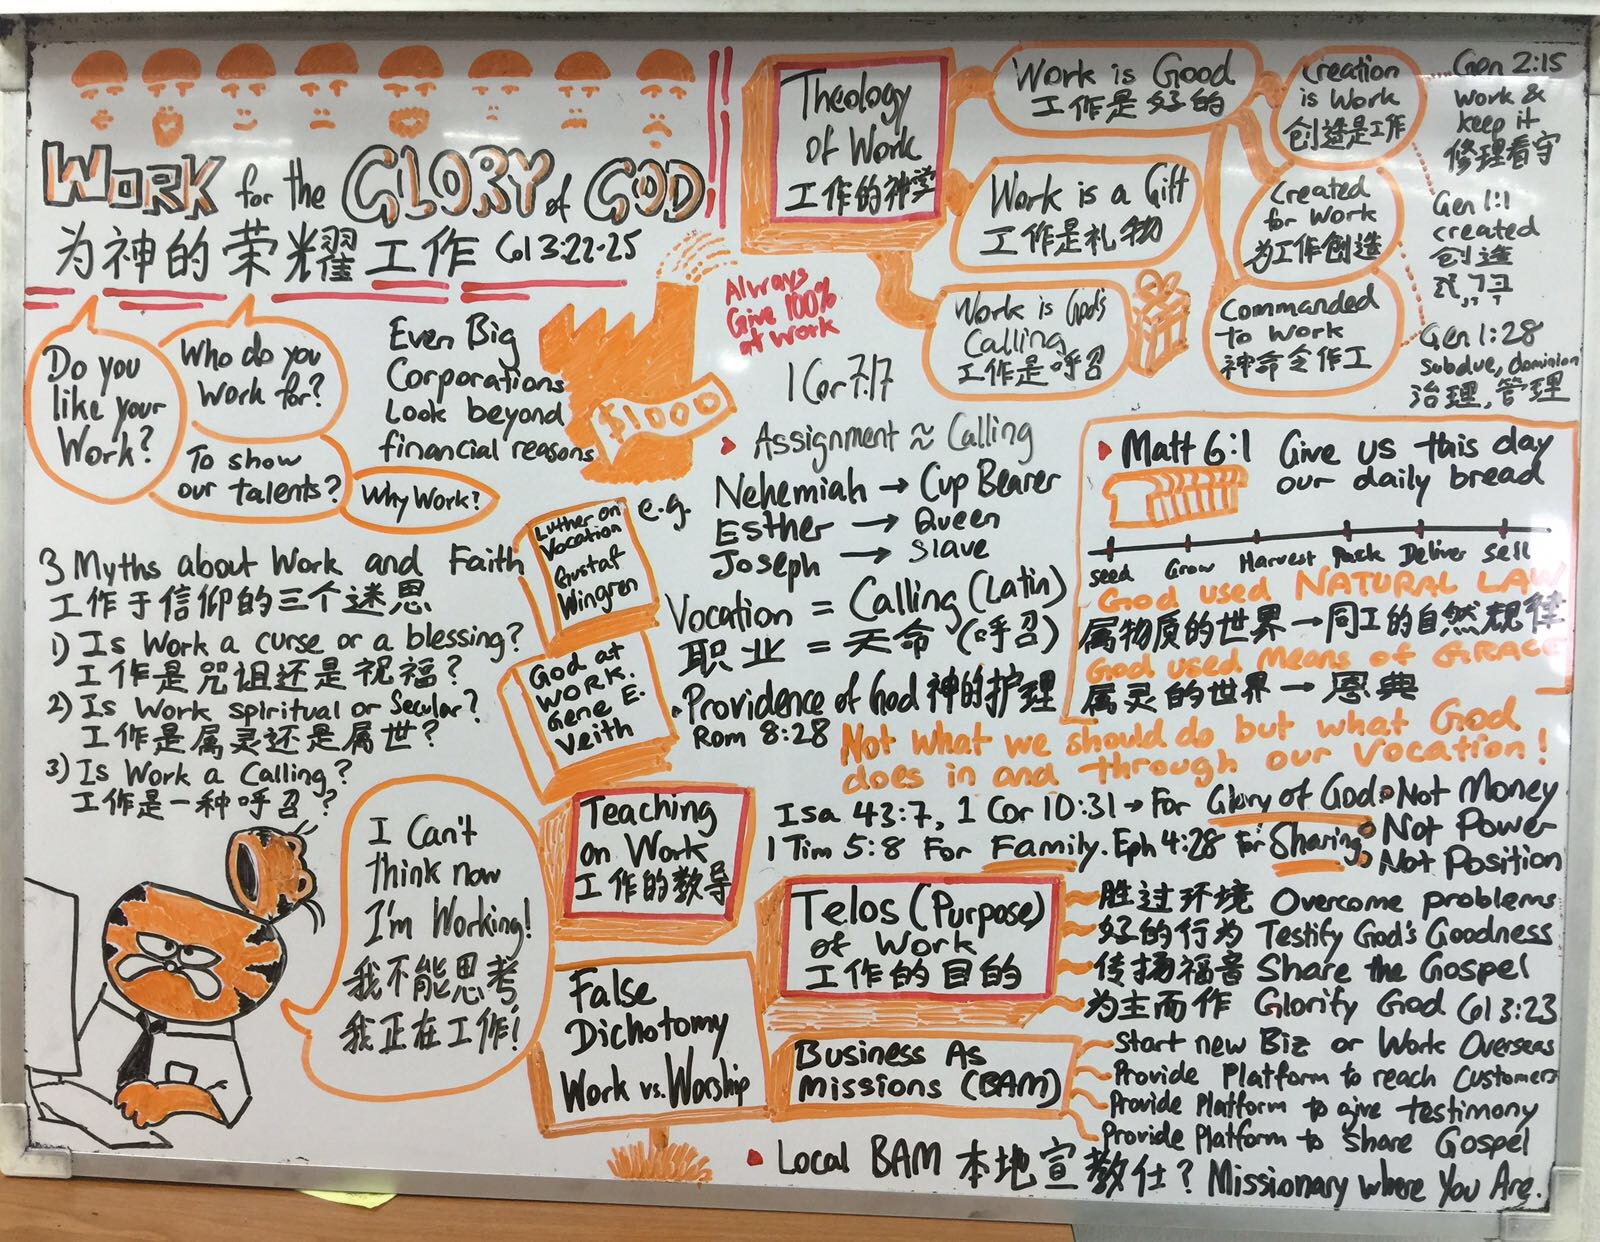 WORK for the GLORY of GOD
为神的荣耀工作 Col 3:22-25
Do you
like your
Work?
Who do you
Work for?
To show
our talents?
Why Work?
Even Big
Corporations
Look beyond
financial reasons
$1000
Always
Give 100%
at work
3 Myths about Work and Faith
工作于信仰的三个迷思
1) Is Work a curse or a blessing?
工作是咒诅还是祝福?
2) Is Work spiritual or Secular?
工作是属灵还是属世?
3) Is Work a Calling?
工作是一种呼召?
I Can't
think now
I'm Working!
我不能思考,
我正在工作!
Luther on
Vocation
Gustaf
Wingren
God at
WORK.
Gene E.
Veith
Theology
of Work
工作的神学
Work is Good
工作是好的
Work is a Gift
工作是礼物
Work is God's
Calling
工作是呼召
Creation
is Work
创造是工作
Created
for Work
为工作创造
Commanded
to Work
神命令作工
Gen 2:15
Work &
keep it
修理看守
Gen 1:1
created
创造
Gen 1:28
Subdue, dominion
治理, 管理
1 Cor 7:17
Assignment ≈ Calling
e.g. Nehemiah → Cup Bearer
Esther → Queen
Joseph → Slave
Vocation = Calling (Latin)
职业 = 天命 (呼召)
Providence of God 神的护理
Rom 8:28
Matt 6:1 Give us this day
our daily bread
seed Grow Harvest Pack Deliver Sell
God used NATURAL LAW
属物质的世界→同工的自然规律
God used means of GRACE
属灵的世界→恩典
Not what we should do but what God
does in and through our Vocation!
Teaching
on Work
工作的教导
Isa 43:7, 1 Cor 10:31 → For Glory of God
1 Tim 5:8 For Family. Eph 4:28 for Sharing
Not Money
Not Power
Not Position
Telos (Purpose)
of Work
工作的目的
胜过环境 Overcome problems
好的行为 Testify God's Goodness
传扬福音 Share the Gospel
为主而作 Glorify God Col 3:23
False
Dichotomy
Work vs. Worship
Business As
Missions (BAM)
Start new Biz or Work Overseas
Provide Platform to reach Customers
Provide Platform to give testimony
Provide Platform to share Gospel
Local BAM 本地宣教仕? Missionary where You Are.